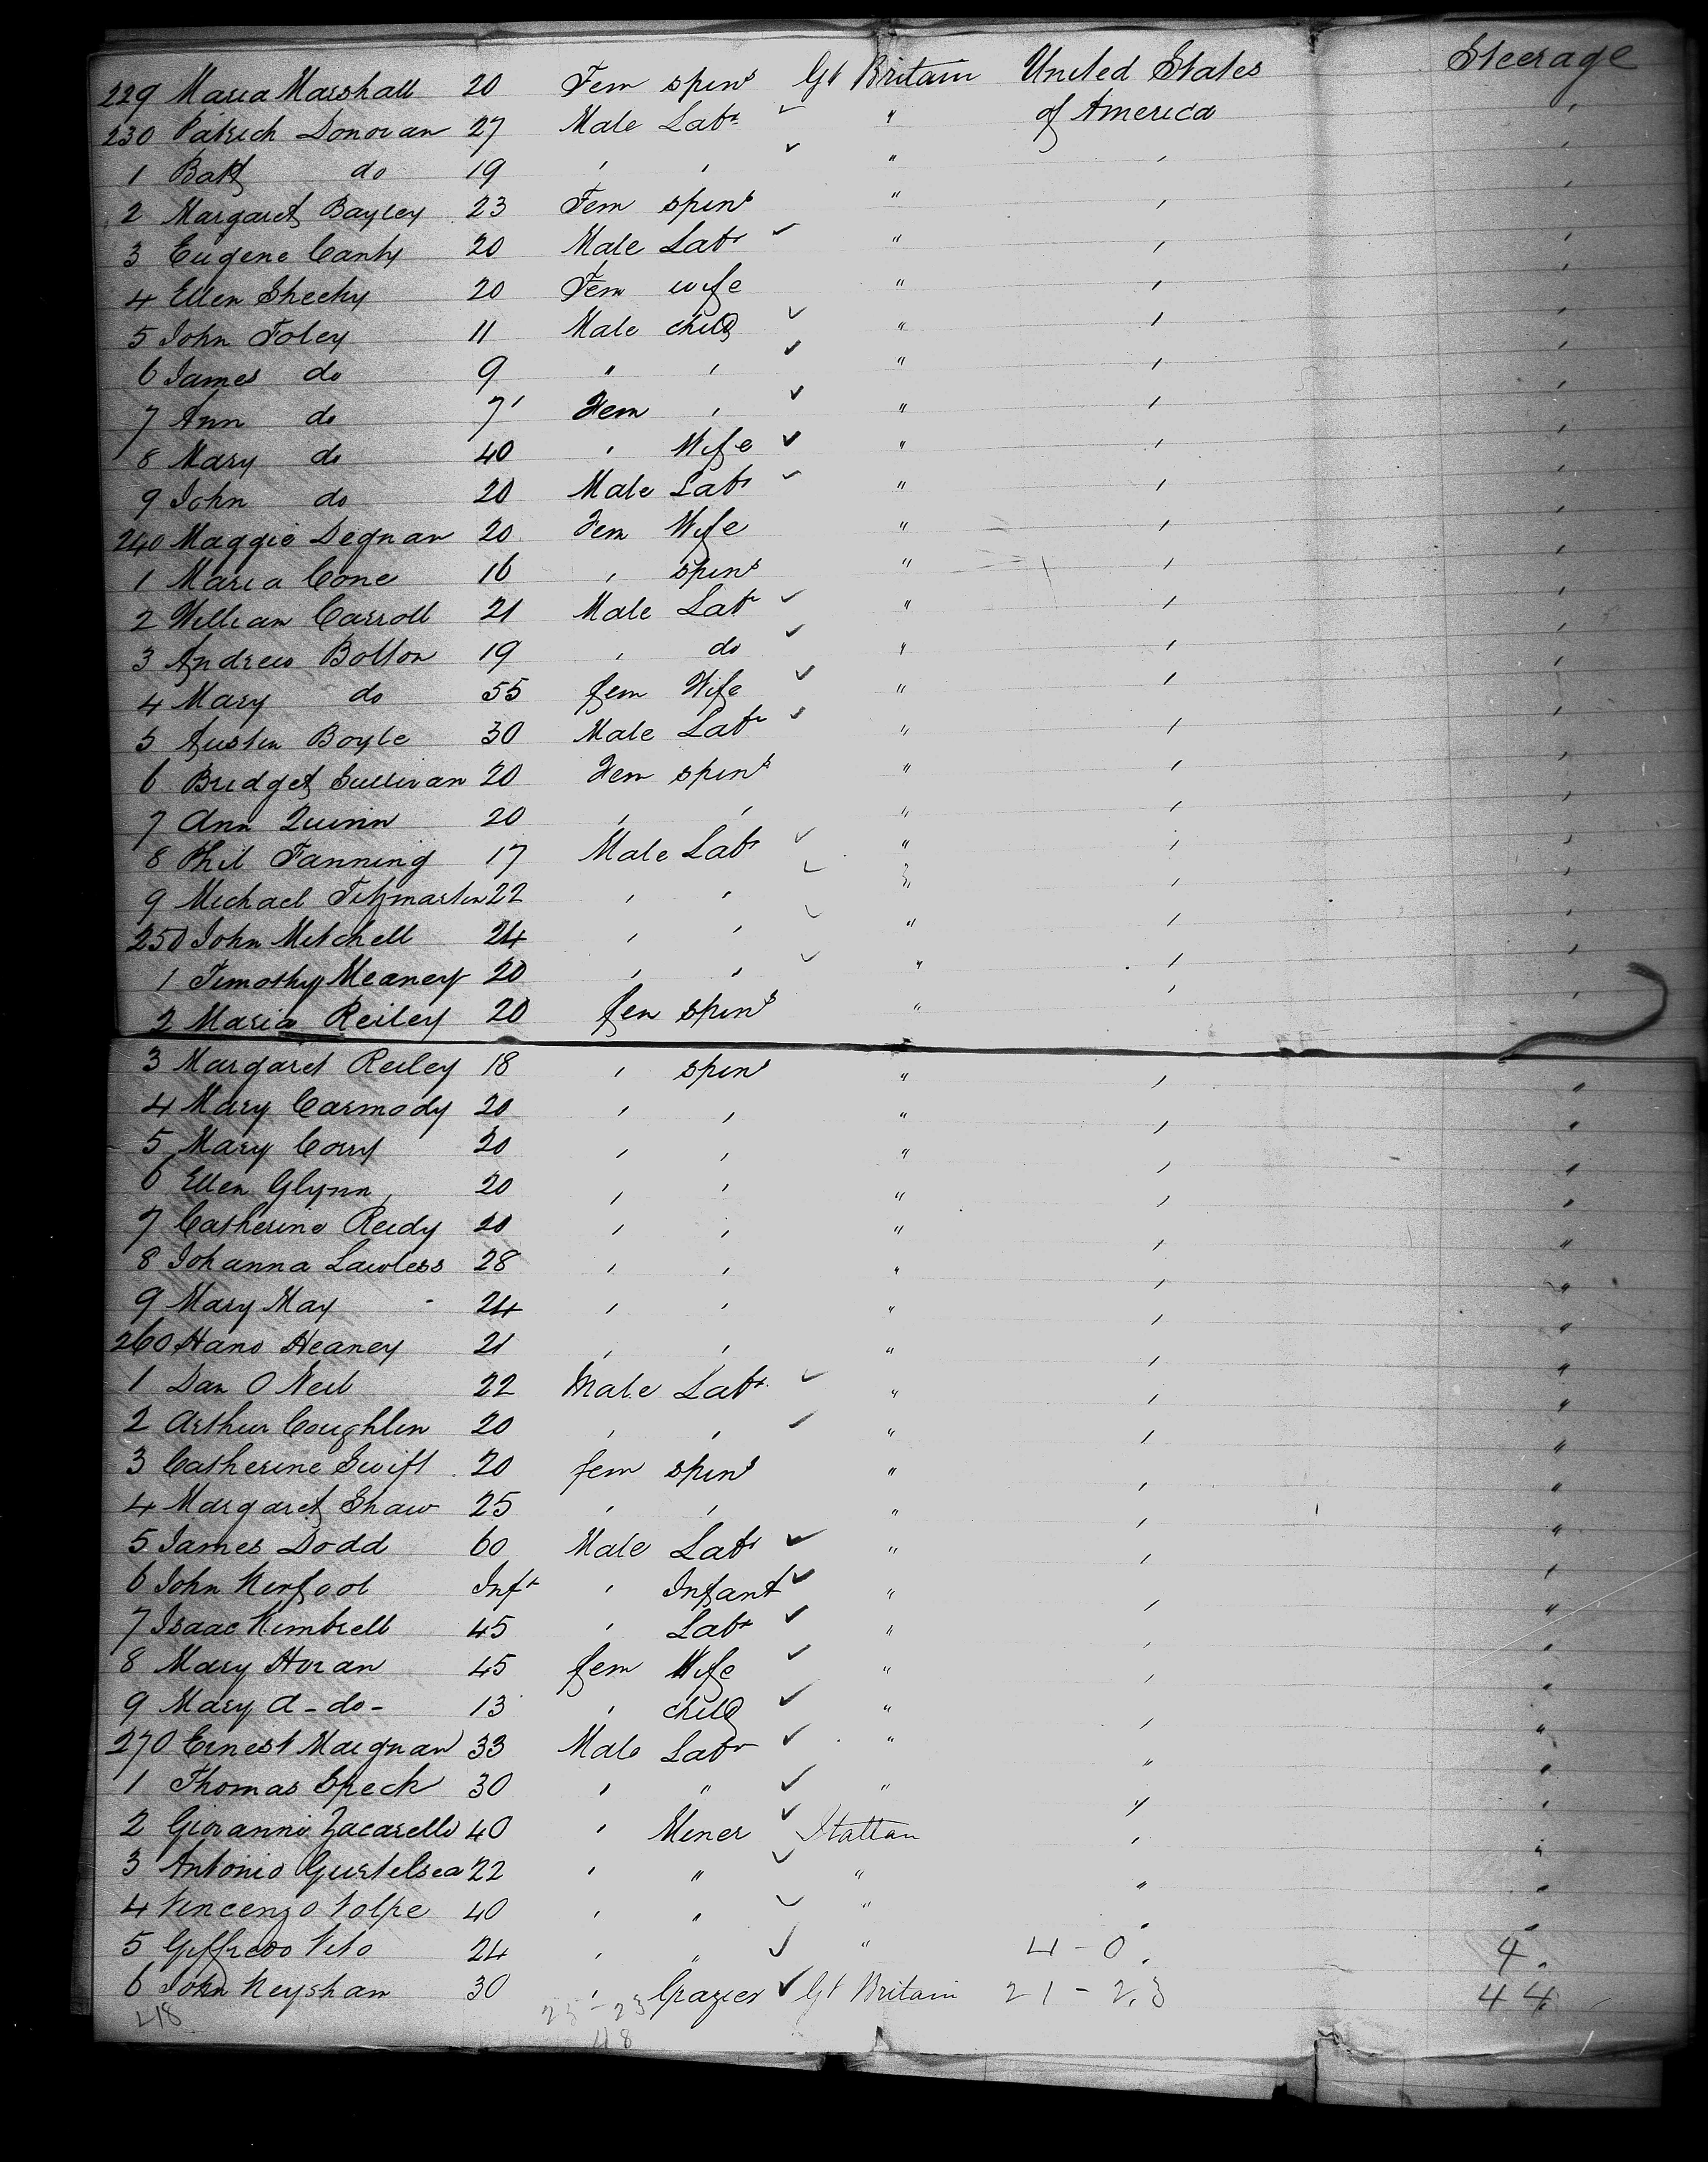 229 Maria Marshall 20 Fem spin^s Gt Britain United States Steerage
230 Patrick Donovan 27 Male Lab^r ✓ " of America '
1 Bart do 19 ' ' ✓ " ' '
2 Margaret Bayley 23 Fem spin^s " ' '
3 Eugene Canty 20 Male Lab^r ✓ " ' '
4 Ellen Sheehy 20 Fem wife " ' '
5 John Foley 11 Male child ✓ " ' '
6 James do 9 " ' ✓ " ' '
7 Ann do 7 Fem ' ✓ " ' '
8 Mary do 40 ' Wife ✓ " ' '
9 John do 20 Male Lab^r ✓ " ' '
240 Maggie Degnan 20 Fem Wife " ' '
1 Maria Cone 16 ' spin^s " ' '
2 William Carroll 21 Male Lab^r ✓ " ' '
3 Andrew Bolton 19 ' do ✓ " ' '
4 Mary do 55 fem Wife ✓ " ' '
5 Austin Boyle 30 Male Lab^r ✓ " ' '
6 Bridget Sullivan 20 Fem spin^s " ' '
7 Ann Quinn 20 ' ' " ' '
8 Phil Fanning 17 Male Lab^r ✓ " ' '
9 Michael Fitzmartin 22 ' ' ✓ " ' '
250 John Mitchell 24 ' ' ✓ " ' '
1 Timothy Meaney 20 ' ' ✓ " ' '
2 Maria Reiley 20 fem spin^s " ' '
3 Margaret Reiley 18 ' spin^s " ' "
4 Mary Carmody 20 ' ' " ' "
5 Mary Corry 20 ' ' " ' "
6 Ellen Glynn 20 ' ' " ' "
7 Catherine Reidy 20 ' ' " ' "
8 Johanna Lawless 28 ' ' " ' "
9 Mary May 24 ' ' " ' "
260 Hano Heaney 21 ' ' " ' "
1 Dan O Neil 22 Male Lab^r ✓ " ' "
2 Arthur Coughlin 20 ' ' ✓ " ' "
3 Catherine Swift 20 fem spin^s " ' "
4 Margaret Shaw 25 ' ' " ' "
5 James Dodd 60 Male Lab^r ✓ " ' "
6 John Kerfoot Inf^t ' Infant ✓ " ' "
7 Isaac Kimbrell 45 ' Lab^r ✓ " ' "
8 Mary Horan 45 fem Wife ✓ " ' "
9 Mary A - do - 13 ' child ✓ " ' "
270 Ernest Maignan 33 Male Lab^r ✓ " " "
1 Thomas Speck 30 ' " ✓ " " "
2 Giovanni Zacarello 40 ' Miner ✓ Italian ' "
3 Antonio 22 ' " ✓ " " "
4 Vincenzo Volpe 40 ' " ✓ " " "
5 Giffredo Vito 24 ' " ✓ " 4 - 0 4
6 John Keysham 30 ' Grazier ✓ Gt Britain 21 - 23 44
48 25 - 23
48